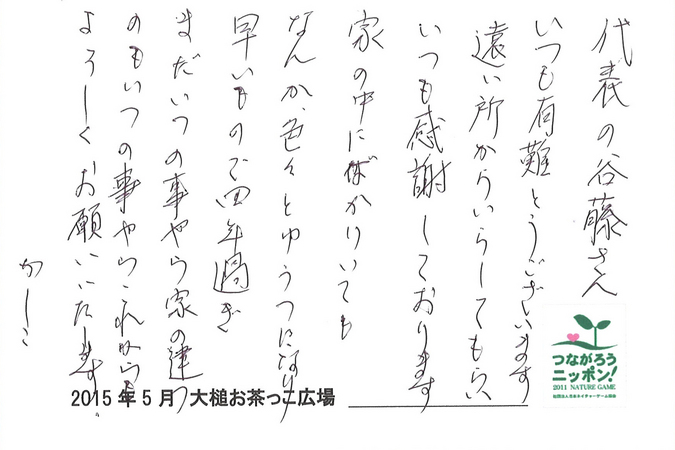 代表の谷藤さん
いつも有難とうございます
遠い所からいらしてもらい
いつも感謝しております
家の中にばかりいても
なんか色々とゆううつになり
早いもので四年過ぎ
まだいつの事やら家の建つ
のもいつの事やらこれからも
よろしくお願いいたします。
かしこ
つながろう
ニッポン!
2011 NATURE GAME
社団法人日本ネイチャーゲーム協会
2015年5月 大槌お茶っこ広場